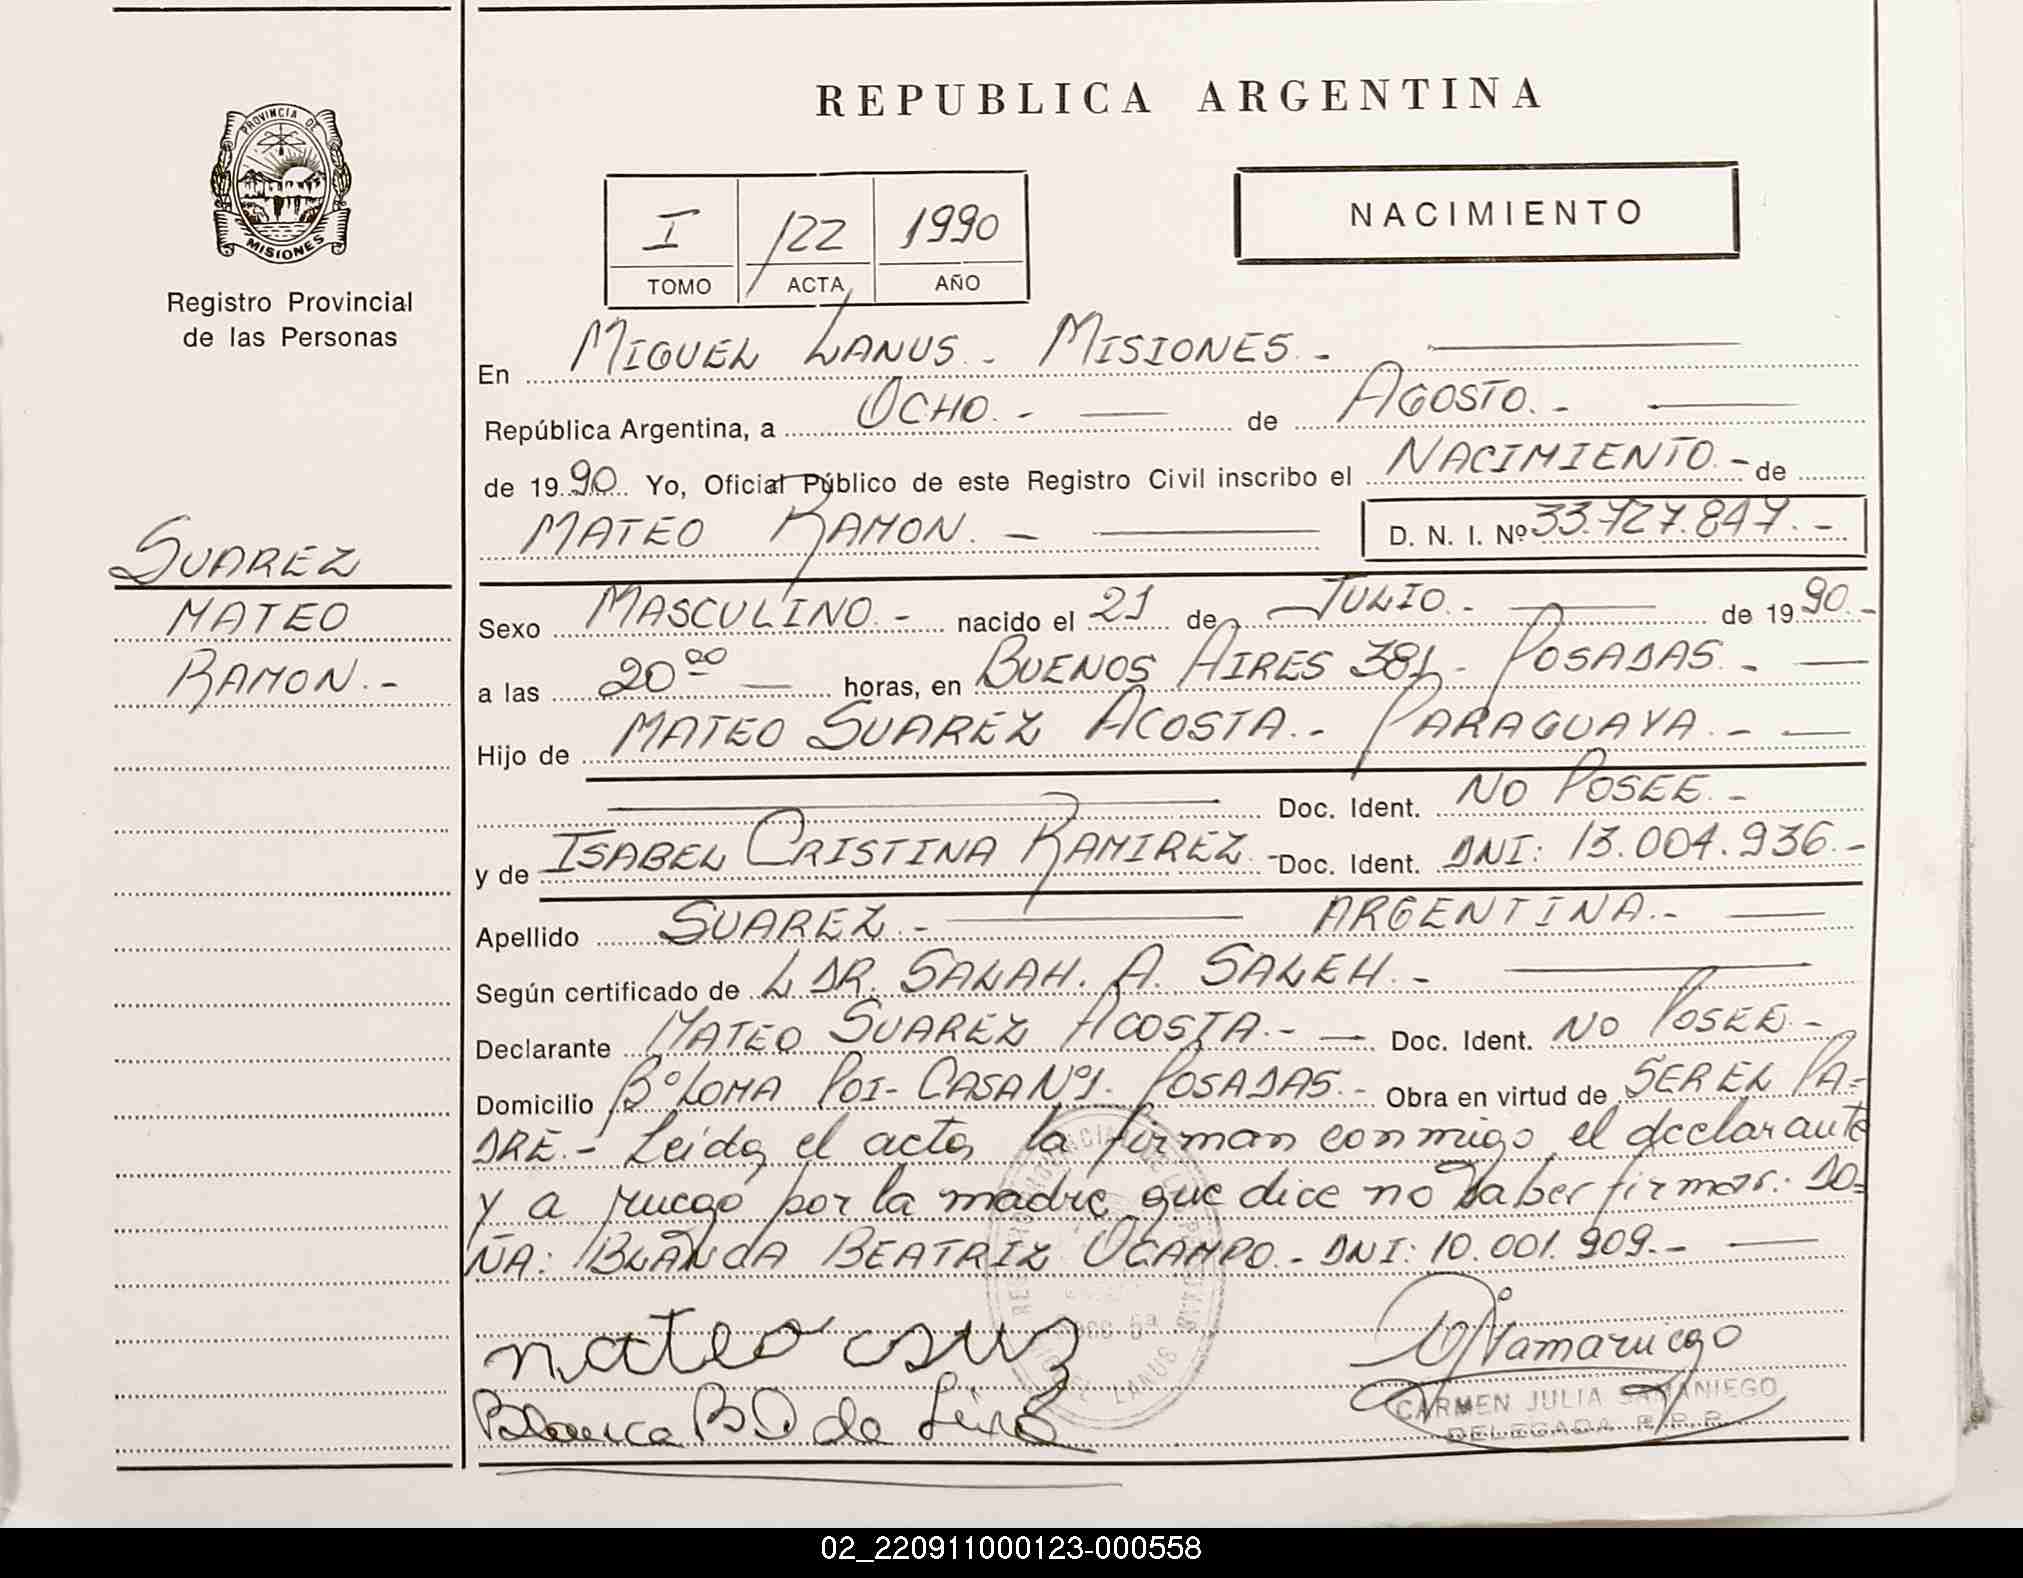 REPUBLICA ARGENTINA
PROVINCIA DE
MISIONES
Registro Provincial
de las Personas
NACIMIENTO
I 122 1990
TOMO ACTA AÑO
En MIGUEL LANUS.- MISIONES.-
República Argentina, a OCHO.- de AGOSTO.-
de 1990 Yo, Oficial Público de este Registro Civil inscribo el NACIMIENTO.- de
MATEO RAMON.- D. N. I. Nº 33.727.847.-
SUAREZ
MATEO
RAMON.-
Sexo MASCULINO.- nacido el 21 de JULIO.- de 1990.-
a las 20 00 horas, en BUENOS AIRES 381- POSADAS.-
Hijo de MATEO SUAREZ ACOSTA.- PARAGUAYA.-
Doc. Ident. NO POSEE.-
y de ISABEL CRISTINA RAMIREZ.- Doc. Ident. DNI: 13.004.936.-
Apellido SUAREZ.- ARGENTINA.-
Según certificado de L DR. SALAH. A. SALEH.-
Declarante MATEO SUAREZ ACOSTA.- Doc. Ident. NO POSEE.-
Domicilio Bº LOMA POI- CASA Nº1- POSADAS.- Obra en virtud de SER EL PA=
DRE.- Leida el acta, la firman conmigo el declarante
y a ruego por la madre que dice no saber firmar: DO=
ÑA: BLANCA BEATRIZ OCAMPO.- DNI: 10.001.909.-
mateo
Blanca B O de
CARMEN JULIA SAMANIEGO
DELEGADA R.P.P.
LANUS
02_220911000123-000558